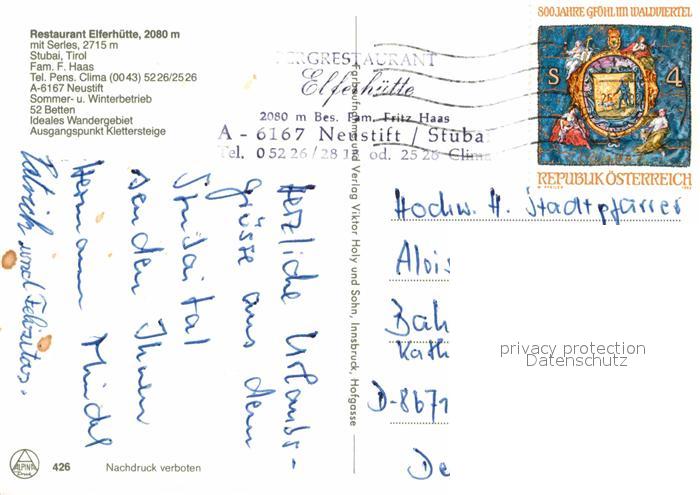 Restaurant Elferhütte, 2080 m
mit Serles, 2715 m
Stubai, Tirol
Fam. F. Haas
Tel. Pens. Clima (0043) 5226/2526
A-6167 Neustift
Sommer- u. Winterbetrieb
52 Betten
Ideales Wandergebiet
Ausgangspunkt Klettersteige
BERGRESTAURANT
Elferhütte
2080 m Bes. Fam. Fritz Haas
A - 6167 Neustift / Stubai
Tel. 05226/28 1 od. 25 26 Clima
800 JAHRE GFÖHL IM WALDVIERTEL
S 4
REPUBLIK ÖSTERREICH
Herzliche Urlaubs-
grüße aus dem
Stubaital
senden Ihnen
Hermann Mindel
Patrick und Felizitas.
Verlag Viktor Holy und Sohn, Innsbruck, Hofgasse
Hochw. H. Stadtpfarrer
Alois
Bah
Kath
D-8671
De
privacy protection
Datenschutz
ALPINA
Druck
426 Nachdruck verboten